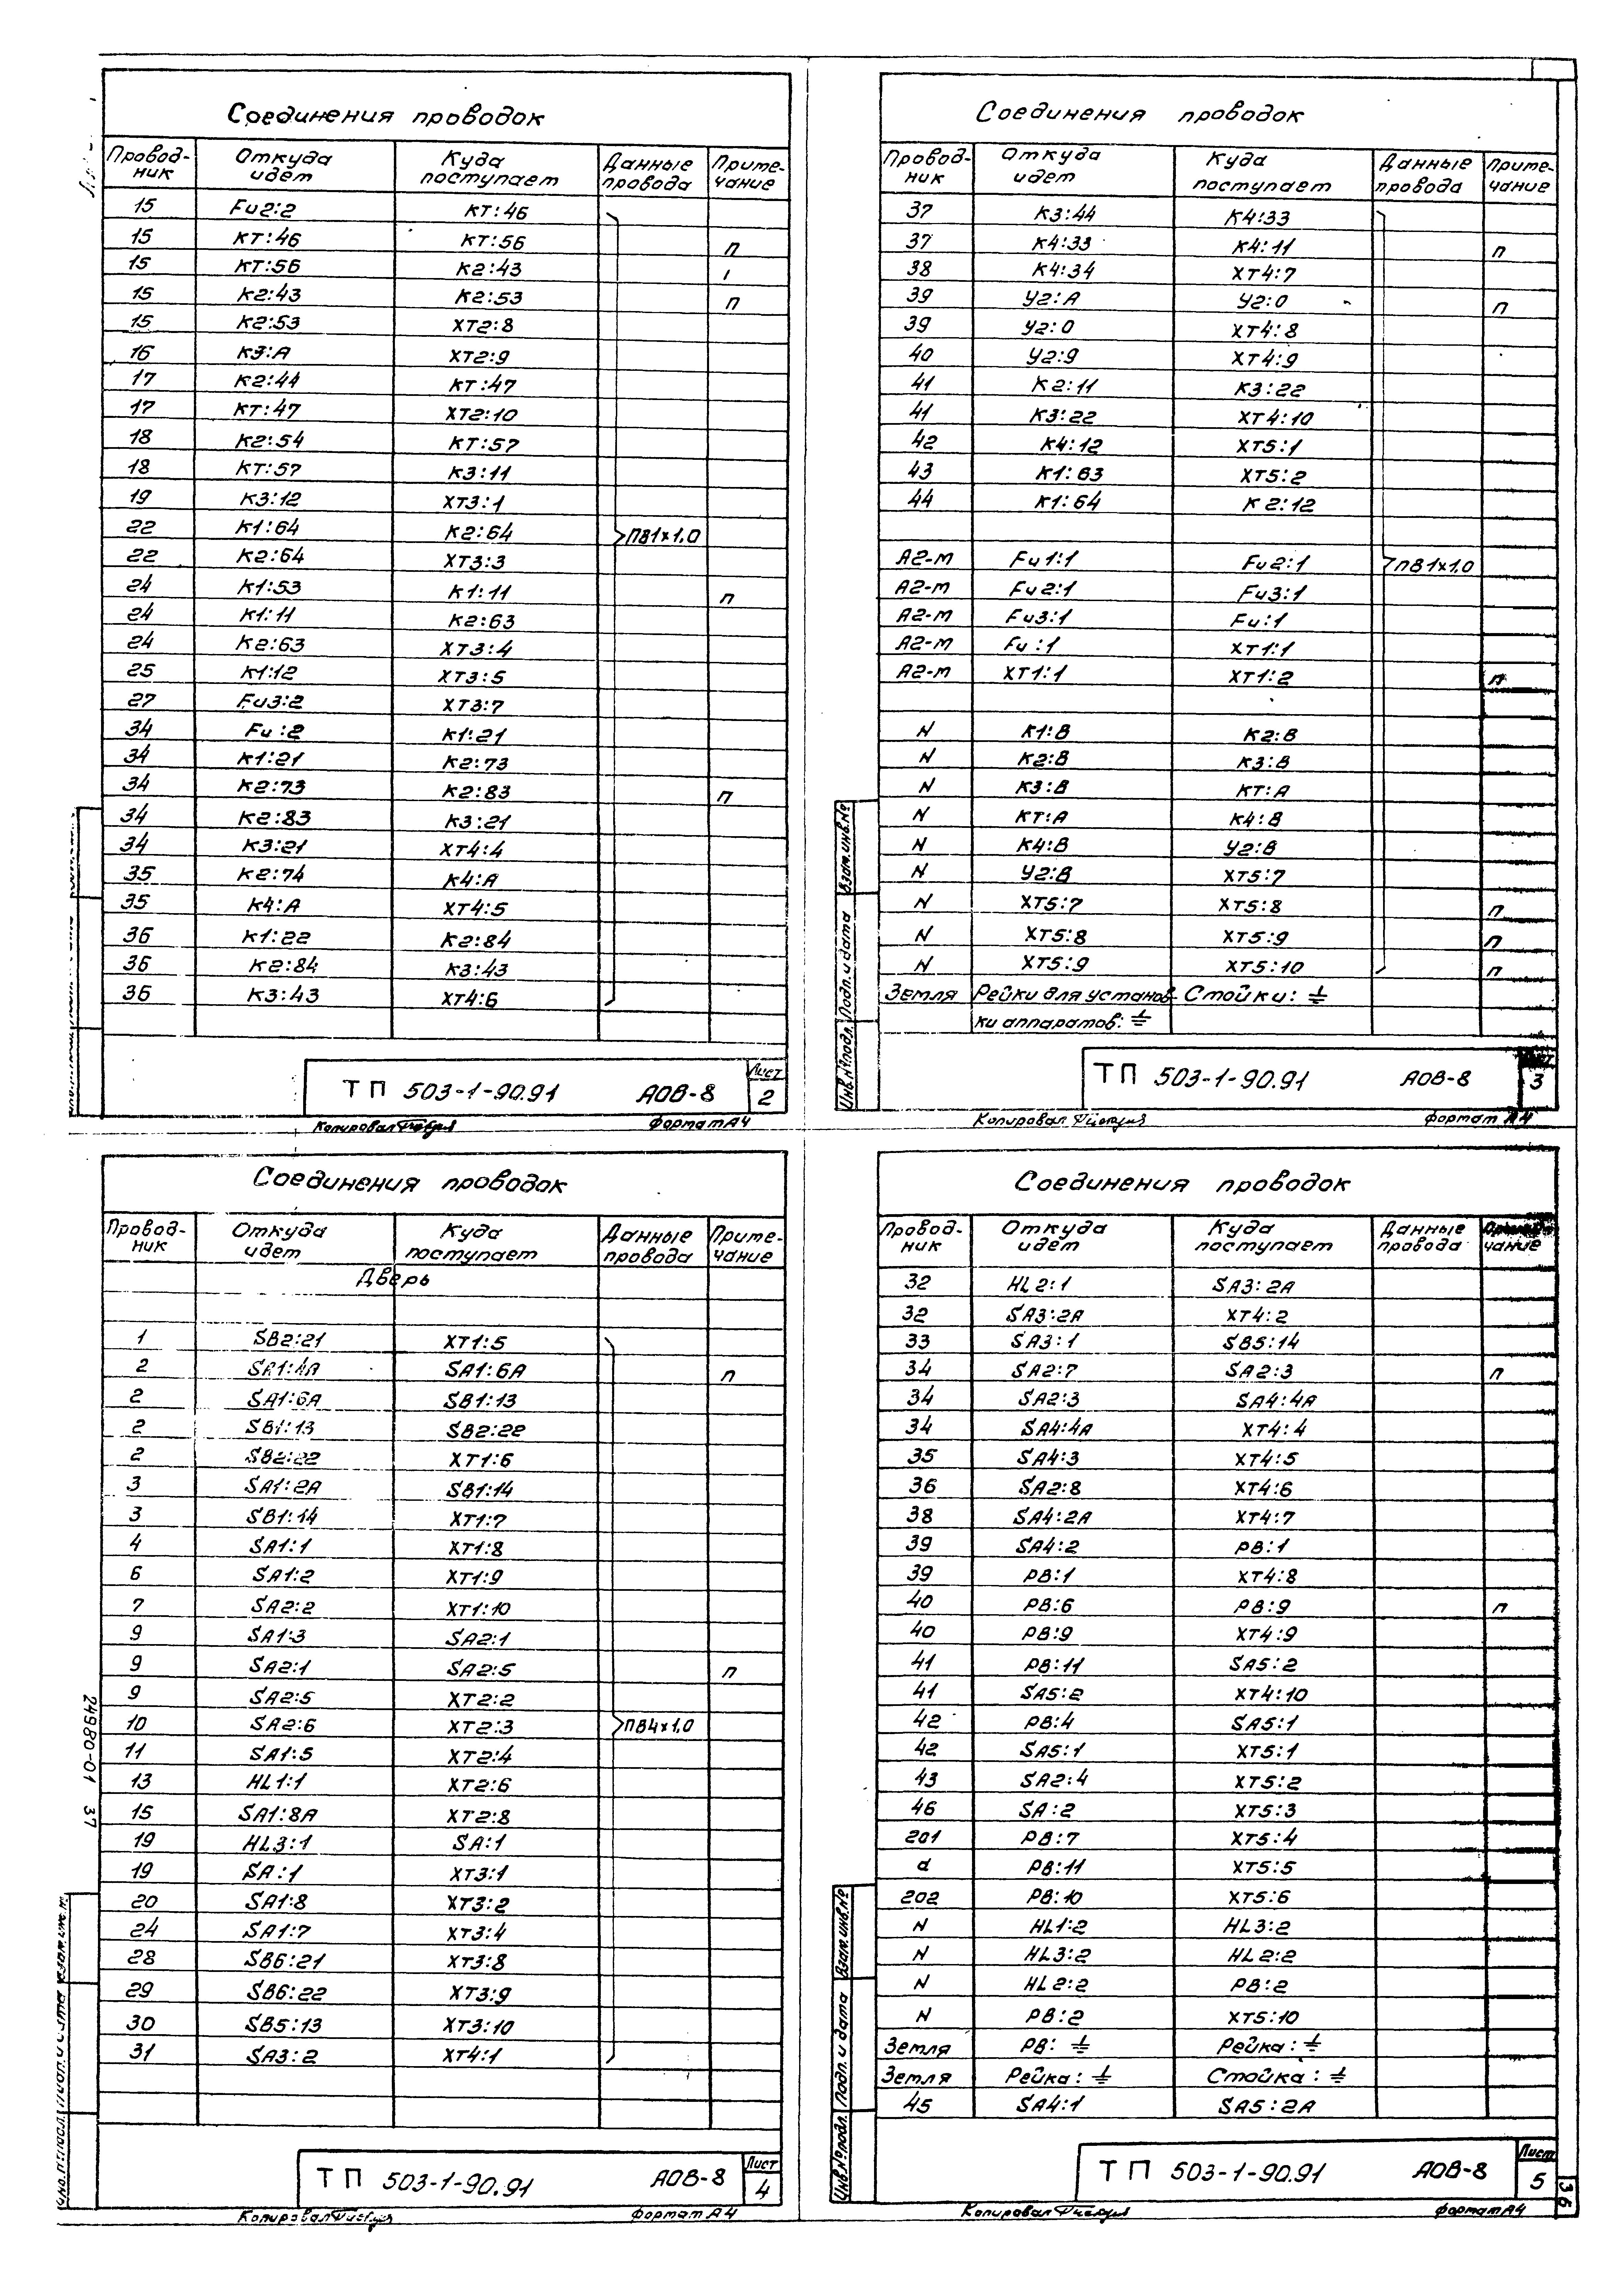 Соединения проводок
Провод-ник Откуда идет Куда поступает Данные провода Приме-чание
15 Fu2:2 КТ:46
15 КТ:46 КТ:56 п
15 КТ:56 К2:43
15 К2:43 К2:53 п
15 К2:53 ХТ2:8
16 К3:А ХТ2:9
17 К2:44 КТ:47
17 КТ:47 ХТ2:10
18 К2:54 КТ:57
18 КТ:57 К3:11
19 К3:12 ХТ3:1
22 К1:64 К2:64 ПВ1х1,0
22 К2:64 ХТ3:3
24 К1:53 К1:11 п
24 К1:11 К2:63
24 К2:63 ХТ3:4
25 К1:12 ХТ3:5
27 Fu3:2 ХТ3:7
34 Fu:2 К1:21
34 К1:21 К2:73
34 К2:73 К2:83 п
34 К2:83 К3:21
34 К3:21 ХТ4:4
35 К2:74 К4:А
35 К4:А ХТ4:5
36 К1:22 К2:84
36 К2:84 К3:43
36 К3:43 ХТ4:6
ТП 503-1-90.91 АОВ-8 Лист 2
Копировал Формат А4
Соединения проводок
Провод-ник Откуда идет Куда поступает Данные провода Приме-чание
37 К3:44 К4:33
37 К4:33 К4:11 п
38 К4:34 ХТ4:7
39 У2:А У2:0 п
39 У2:0 ХТ4:8
40 У2:9 ХТ4:9
41 К2:11 К3:22
41 К3:22 ХТ4:10
42 К4:12 ХТ5:1
43 К1:63 ХТ5:2
44 К1:64 К2:12
А2-м Fu1:1 Fu2:1 ПВ1х1,0
А2-м Fu2:1 Fu3:1
А2-м Fu3:1 Fu:1
А2-м Fu:1 ХТ1:1
А2-м ХТ1:1 ХТ1:2 п
N К1:В К2:В
N К2:В К3:В
N К3:В КТ:А
N КТ:А К4:В
N К4:В У2:В
N У2:В ХТ5:7
N ХТ5:7 ХТ5:8 п
N ХТ5:8 ХТ5:9 п
N ХТ5:9 ХТ5:10 п
Земля Рейки для установ- Стойки: ⏚
ки аппаратов: ⏚
Инв.№подл. Подп. и дата Взам.инв.№
ТП 503-1-90.91 АОВ-8 Лист 3
Копировал Формат А4
Соединения проводок
Провод-ник Откуда идет Куда поступает Данные провода Приме-чание
Дверь
1 SB2:21 ХТ1:5
2 SA1:4А SA1:6А п
2 SA1:6А SB1:13
2 SB1:13 SB2:22
2 SB2:22 ХТ1:6
3 SA1:2А SB1:14
3 SB1:14 ХТ1:7
4 SA1:1 ХТ1:8
6 SA1:2 ХТ1:9
7 SA2:2 ХТ1:10
9 SA1:3 SA2:1
9 SA2:1 SA2:5 п
9 SA2:5 ХТ2:2
10 SA2:6 ХТ2:3 ПВ4х1,0
11 SA1:5 ХТ2:4
13 HL1:1 ХТ2:6
15 SA1:8А ХТ2:8
19 HL3:1 SA:1
19 SA:1 ХТ3:1
20 SA1:8 ХТ3:2
24 SA1:7 ХТ3:4
28 SB6:21 ХТ3:8
29 SB6:22 ХТ3:9
30 SB5:13 ХТ3:10
31 SA3:2 ХТ4:1
24980-01 37
ТП 503-1-90.91 АОВ-8 Лист 4
Копировал Формат А4
Соединения проводок
Провод-ник Откуда идет Куда поступает Данные провода Приме-чание
32 HL2:1 SA3:2А
32 SA3:2А ХТ4:2
33 SA3:1 SB5:14
34 SA2:7 SA2:3 п
34 SA2:3 SA4:4А
34 SA4:4А ХТ4:4
35 SA4:3 ХТ4:5
36 SA2:8 ХТ4:6
38 SA4:2А ХТ4:7
39 SA4:2 РВ:1
39 РВ:1 ХТ4:8
40 РВ:6 РВ:9 п
40 РВ:9 ХТ4:9
41 РВ:11 SA5:2
41 SA5:2 ХТ4:10
42 РВ:4 SA5:1
42 SA5:1 ХТ5:1
43 SA2:4 ХТ5:2
46 SA:2 ХТ5:3
201 РВ:7 ХТ5:4
d РВ:11 ХТ5:5
202 РВ:10 ХТ5:6
N HL1:2 HL3:2
N HL3:2 HL2:2
N HL2:2 РВ:2
N РВ:2 ХТ5:10
Земля РВ: ⏚ Рейка: ⏚
Земля Рейка: ⏚ Стойка: ⏚
45 SA4:1 SA5:2А
Инв.№подл. Подп. и дата Взам.инв.№
ТП 503-1-90.91 АОВ-8 Лист 5
Копировал Формат А4
36